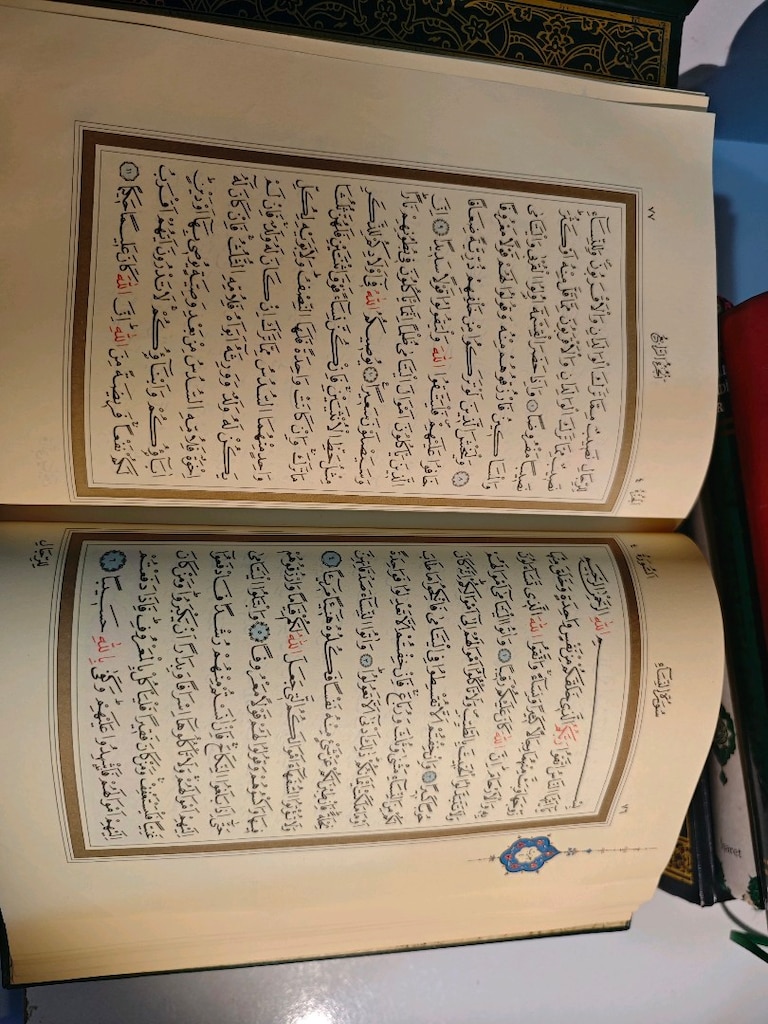 سُورَةُ النِّسَاءِ
السُّورَةُ ٤
٧٦
بِسْمِ اللّٰهِ الرَّحْمٰنِ الرَّحِيمِ
يَٓا اَيُّهَا النَّاسُ اتَّقُوا رَبَّكُمُ الَّذِي خَلَقَكُمْ مِنْ نَفْسٍ وَاحِدَةٍ وَخَلَقَ مِنْهَا
زَوْجَهَا وَبَثَّ مِنْهُمَا رِجَالًا كَثِيرًا وَنِسَٓاءً وَاتَّقُوا اللّٰهَ الَّذِي تَسَٓاءَلُونَ
بِهِ وَالْاَرْحَامَ اِنَّ اللّٰهَ كَانَ عَلَيْكُمْ رَقِيبًا ١ وَاٰتُوا الْيَتَامٰٓى اَمْوَالَهُمْ
وَلَا تَتَبَدَّلُوا الْخَبِيثَ بِالطَّيِّبِ وَلَا تَأْكُلُٓوا اَمْوَالَهُمْ اِلٰٓى اَمْوَالِكُمْ اِنَّهُ كَانَ
حُوبًا كَبِيرًا ٢ وَاِنْ خِفْتُمْ اَلَّا تُقْسِطُوا فِي الْيَتَامٰى فَانْكِحُوا مَا طَابَ
لَكُمْ مِنَ النِّسَٓاءِ مَثْنٰى وَثُلٰثَ وَرُبَاعَ فَاِنْ خِفْتُمْ اَلَّا تَعْدِلُوا فَوَاحِدَةً
اَوْ مَا مَلَكَتْ اَيْمَانُكُمْ ذٰلِكَ اَدْنٰٓى اَلَّا تَعُولُوا ٣ وَاٰتُوا النِّسَٓاءَ صَدُقَاتِهِنَّ
نِحْلَةً فَاِنْ طِبْنَ لَكُمْ عَنْ شَيْءٍ مِنْهُ نَفْسًا فَكُلُوهُ هَنِٓيئًا مَرِٓيئًا ٤
وَلَا تُؤْتُوا السُّفَهَٓاءَ اَمْوَالَكُمُ الَّتِي جَعَلَ اللّٰهُ لَكُمْ قِيَامًا وَارْزُقُوهُمْ
فِيهَا وَاكْسُوهُمْ وَقُولُوا لَهُمْ قَوْلًا مَعْرُوفًا ٥ وَابْتَلُوا الْيَتَامٰى
حَتّٰٓى اِذَا بَلَغُوا النِّكَاحَ فَاِنْ اٰنَسْتُمْ مِنْهُمْ رُشْدًا فَادْفَعُٓوا
اِلَيْهِمْ اَمْوَالَهُمْ وَلَا تَأْكُلُوهَٓا اِسْرَافًا وَبِدَارًا اَنْ يَكْبَرُوا وَمَنْ كَانَ
غَنِيًّا فَلْيَسْتَعْفِفْ وَمَنْ كَانَ فَقِيرًا فَلْيَأْكُلْ بِالْمَعْرُوفِ فَاِذَا دَفَعْتُمْ
اِلَيْهِمْ اَمْوَالَهُمْ فَاَشْهِدُوا عَلَيْهِمْ وَكَفٰى بِاللّٰهِ حَسِيبًا ٦
لِلرِّجَالِ
٧٧
اَلْجُزْءُ الرَّابِعُ
الْجُزْءُ ٤
لِلرِّجَالِ نَصِيبٌ مِمَّا تَرَكَ الْوَالِدَانِ وَالْاَقْرَبُونَ وَلِلنِّسَٓاءِ
نَصِيبٌ مِمَّا تَرَكَ الْوَالِدَانِ وَالْاَقْرَبُونَ مِمَّا قَلَّ مِنْهُ اَوْ كَثُرَ
نَصِيبًا مَفْرُوضًا ٧ وَاِذَا حَضَرَ الْقِسْمَةَ اُولُوا الْقُرْبٰى وَالْيَتَامٰى
وَالْمَسَاكِينُ فَارْزُقُوهُمْ مِنْهُ وَقُولُوا لَهُمْ قَوْلًا مَعْرُوفًا
٨ وَلْيَخْشَ الَّذِينَ لَوْ تَرَكُوا مِنْ خَلْفِهِمْ ذُرِّيَّةً ضِعَافًا
خَافُوا عَلَيْهِمْ فَلْيَتَّقُوا اللّٰهَ وَلْيَقُولُوا قَوْلًا سَدِيدًا ٩ اِنَّ
الَّذِينَ يَأْكُلُونَ اَمْوَالَ الْيَتَامٰى ظُلْمًا اِنَّمَا يَأْكُلُونَ فِي بُطُونِهِمْ نَارًا
وَسَيَصْلَوْنَ سَعِيرًا ١٠ يُوصِيكُمُ اللّٰهُ فِٓي اَوْلَادِكُمْ لِلذَّكَرِ
مِثْلُ حَظِّ الْاُنْثَيَيْنِ فَاِنْ كُنَّ نِسَٓاءً فَوْقَ اثْنَتَيْنِ فَلَهُنَّ ثُلُثَا
مَا تَرَكَ وَاِنْ كَانَتْ وَاحِدَةً فَلَهَا النِّصْفُ وَلِاَبَوَيْهِ لِكُلِّ
وَاحِدٍ مِنْهُمَا السُّدُسُ مِمَّا تَرَكَ اِنْ كَانَ لَهُ وَلَدٌ فَاِنْ لَمْ
يَكُنْ لَهُ وَلَدٌ وَوَرِثَهُٓ اَبَوَاهُ فَلِاُمِّهِ الثُّلُثُ فَاِنْ كَانَ لَهُٓ
اِخْوَةٌ فَلِاُمِّهِ السُّدُسُ مِنْ بَعْدِ وَصِيَّةٍ يُوصِي بِهَٓا اَوْ دَيْنٍ
اٰبَٓاؤُكُمْ وَاَبْنَٓاؤُكُمْ لَا تَدْرُونَ اَيُّهُمْ اَقْرَبُ
لَكُمْ نَفْعًا فَرِيضَةً مِنَ اللّٰهِ اِنَّ اللّٰهَ كَانَ عَلِيمًا حَكِيمًا ١١